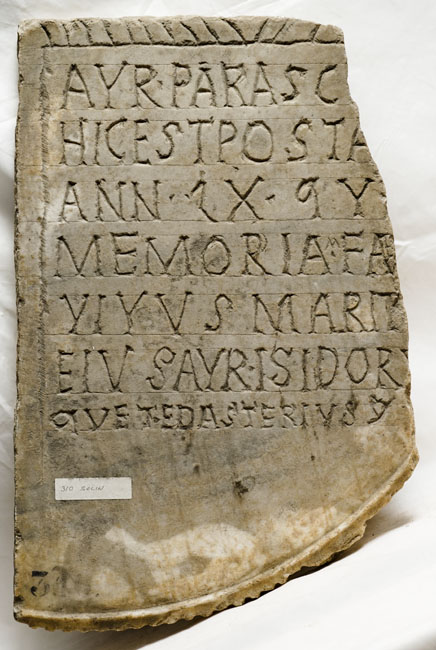 AVR·PARASC
HIC EST POSTA
ANN·LX·QV
MEMORIA·FA
VIVVS MARIT
EIVS AVR·ISIDOR
QVETEDASTERIVS V
310